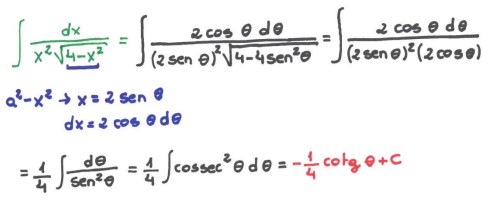 ∫ dx / (x²√(4-x²)) = ∫ 2 cos θ dθ / ((2 sen θ)²√(4-4sen²θ)) = ∫ 2 cos θ dθ / ((2senθ)²(2cosθ))
a²-x² → x = 2 sen θ
dx = 2 cos θ dθ
= 1/4 ∫ dθ / sen²θ = 1/4 ∫ cossec²θ dθ = -1/4 cotg θ + C